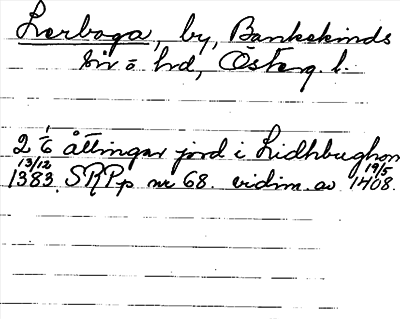 Lerboga, by, Bankekinds
sn o hd, Österg l.
2 1/6 åttingar jord i Lidhbughom
13/12 1383. SRPp nr 68. vidim. av 19/5 1408.